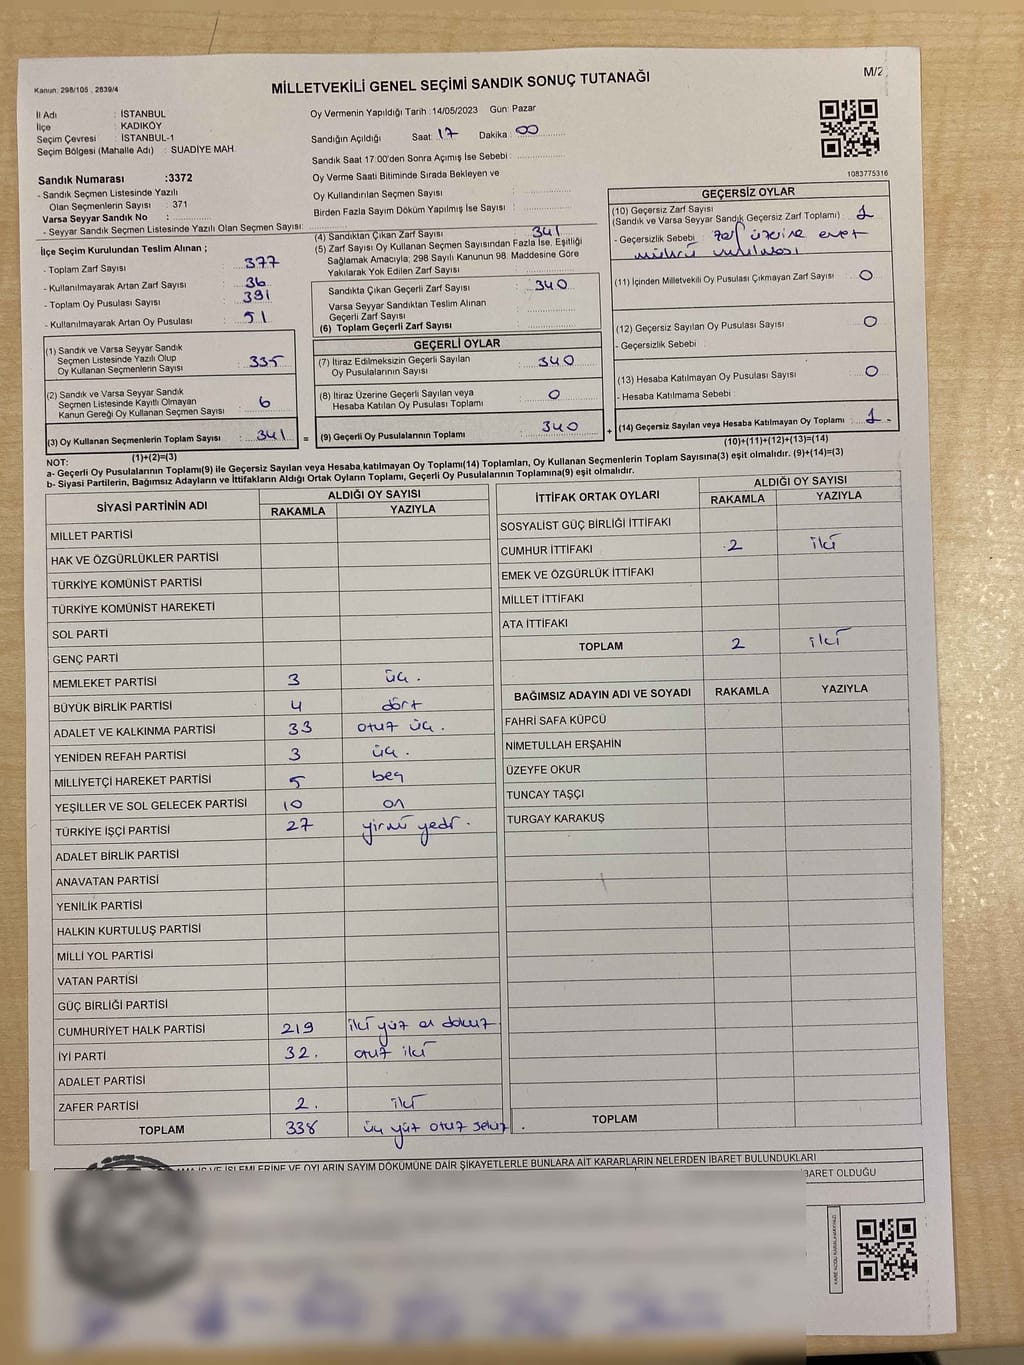 Kanun: 298/105 , 2839/4
MİLLETVEKİLİ GENEL SEÇİMİ SANDIK SONUÇ TUTANAĞI
M/2
İl Adı : İSTANBUL
İlçe : KADIKÖY
Seçim Çevresi : İSTANBUL-1
Seçim Bölgesi (Mahalle Adı) : SUADİYE MAH.
Oy Vermenin Yapıldığı Tarih :14/05/2023 Gün: Pazar
Sandığın Açıldığı Saat: 17 Dakika : 00
Sandık Saat 17:00'den Sonra Açılmış İse Sebebi :
Oy Verme Saati Bitiminde Sırada Bekleyen ve
Oy Kullandırılan Seçmen Sayısı :
Birden Fazla Sayım Döküm Yapılmış İse Sayısı :
1083775316
Sandık Numarası :3372
- Sandık Seçmen Listesinde Yazılı
Olan Seçmenlerin Sayısı : 371
Varsa Seyyar Sandık No :
- Seyyar Sandık Seçmen Listesinde Yazılı Olan Seçmen Sayısı:
İlçe Seçim Kurulundan Teslim Alınan ;
- Toplam Zarf Sayısı : 377
- Kullanılmayarak Artan Zarf Sayısı : 36
- Toplam Oy Pusulası Sayısı : 391
- Kullanılmayarak Artan Oy Pusulası : 51
(1) Sandık ve Varsa Seyyar Sandık
Seçmen Listesinde Yazılı Olup
Oy Kullanan Seçmenlerin Sayısı : 335
(2) Sandık ve Varsa Seyyar Sandık
Seçmen Listesinde Kayıtlı Olmayan
Kanun Gereği Oy Kullanan Seçmen Sayısı : 6
(3) Oy Kullanan Seçmenlerin Toplam Sayısı : 341 =
(1)+(2)=(3)
(4) Sandıktan Çıkan Zarf Sayısı : 341
(5) Zarf Sayısı Oy Kullanan Seçmen Sayısından Fazla İse, Eşitliği
Sağlamak Amacıyla; 298 Sayılı Kanunun 98. Maddesine Göre
Yakılarak Yok Edilen Zarf Sayısı :
Sandıkta Çıkan Geçerli Zarf Sayısı : 340
Varsa Seyyar Sandıktan Teslim Alınan
Geçerli Zarf Sayısı :
(6) Toplam Geçerli Zarf Sayısı :
GEÇERLİ OYLAR
(7) İtiraz Edilmeksizin Geçerli Sayılan
Oy Pusulalarının Sayısı : 340
(8) İtiraz Üzerine Geçerli Sayılan veya
Hesaba Katılan Oy Pusulası Toplamı : 0
(9) Geçerli Oy Pusulalarının Toplamı : 340 +
GEÇERSİZ OYLAR
(10) Geçersiz Zarf Sayısı
(Sandık ve Varsa Seyyar Sandık Geçersiz Zarf Toplamı) : 1
- Geçersizlik Sebebi : zarf üzerine evet
mührü vurulması
(11) İçinden Milletvekili Oy Pusulası Çıkmayan Zarf Sayısı : 0
(12) Geçersiz Sayılan Oy Pusulası Sayısı : 0
- Geçersizlik Sebebi :
(13) Hesaba Katılmayan Oy Pusulası Sayısı : 0
- Hesaba Katılmama Sebebi
(14) Geçersiz Sayılan veya Hesaba Katılmayan Oy Toplamı : 1
(10)+(11)+(12)+(13)=(14)
NOT:
a- Geçerli Oy Pusulalarının Toplamı(9) ile Geçersiz Sayılan veya Hesaba katılmayan Oy Toplamı(14) Toplamları, Oy Kullanan Seçmenlerin Toplam Sayısına(3) eşit olmalıdır. (9)+(14)=(3)
b- Siyasi Partilerin, Bağımsız Adayların ve İttifakların Aldığı Ortak Oyların Toplamı, Geçerli Oy Pusulalarının Toplamına(9) eşit olmalıdır.
SİYASİ PARTİNİN ADI
ALDIĞI OY SAYISI
RAKAMLA YAZIYLA
MİLLET PARTİSİ
HAK VE ÖZGÜRLÜKLER PARTİSİ
TÜRKİYE KOMÜNİST PARTİSİ
TÜRKİYE KOMÜNİST HAREKETİ
SOL PARTİ
GENÇ PARTİ
MEMLEKET PARTİSİ 3 üç.
BÜYÜK BİRLİK PARTİSİ 4 dört
ADALET VE KALKINMA PARTİSİ 33 otuz üç.
YENİDEN REFAH PARTİSİ 3 üç.
MİLLİYETÇİ HAREKET PARTİSİ 5 beş
YEŞİLLER VE SOL GELECEK PARTİSİ 10 on
TÜRKİYE İŞÇİ PARTİSİ 27 yirmi yedi.
ADALET BİRLİK PARTİSİ
ANAVATAN PARTİSİ
YENİLİK PARTİSİ
HALKIN KURTULUŞ PARTİSİ
MİLLİ YOL PARTİSİ
VATAN PARTİSİ
GÜÇ BİRLİĞİ PARTİSİ
CUMHURİYET HALK PARTİSİ 219 iki yüz on dokuz
İYİ PARTİ 32. otuz iki
ADALET PARTİSİ
ZAFER PARTİSİ 2. iki
TOPLAM 338 üç yüz otuz sekiz.
İTTİFAK ORTAK OYLARI
ALDIĞI OY SAYISI
RAKAMLA YAZIYLA
SOSYALİST GÜÇ BİRLİĞİ İTTİFAKI
CUMHUR İTTİFAKI 2 iki
EMEK VE ÖZGÜRLÜK İTTİFAKI
MİLLET İTTİFAKI
ATA İTTİFAKI
TOPLAM 2 iki
BAĞIMSIZ ADAYIN ADI VE SOYADI RAKAMLA YAZIYLA
FAHRİ SAFA KÜPCÜ
NİMETULLAH ERŞAHİN
ÜZEYFE OKUR
TUNCAY TAŞÇI
TURGAY KARAKUŞ
TOPLAM
İŞLEMLERİNE VE OYLARIN SAYIM DÖKÜMÜNE DAİR ŞİKAYETLERLE BUNLARA AİT KARARLARIN NELERDEN İBARET BULUNDUKLARI
İBARET OLDUĞU